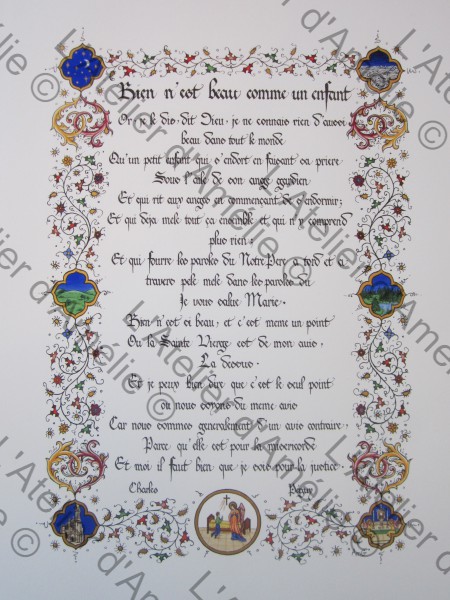 Rien n'est beau comme un enfant
Or, je le dis, dit Dieu, je ne connais rien d'aussi
beau dans tout le monde
Qu'un petit enfant qui s'endort en faisant sa priere
Sous l'aile de son ange gardien
Et qui rit aux anges en commençant de s'endormir;
Et qui deja mele tout ça ensemble et qui n'y comprend
plus rien;
Et qui fourre les paroles du Notre Pere a tord et a
travers pele mele dans les paroles du
Je vous salue Marie.
Rien n'est si beau, et c'est meme un point
Ou la Sainte Vierge est de mon avis,
La dessus.
Et je peux bien dire que c'est le seul point
ou nous soyons du meme avis
Car nous sommes generalement d'un avis contraire,
Parce qu'elle est pour la misericord
Et moi il faut bien que je sois pour la justice.
Charles Peguy
L'Atelier d'Amélie ©